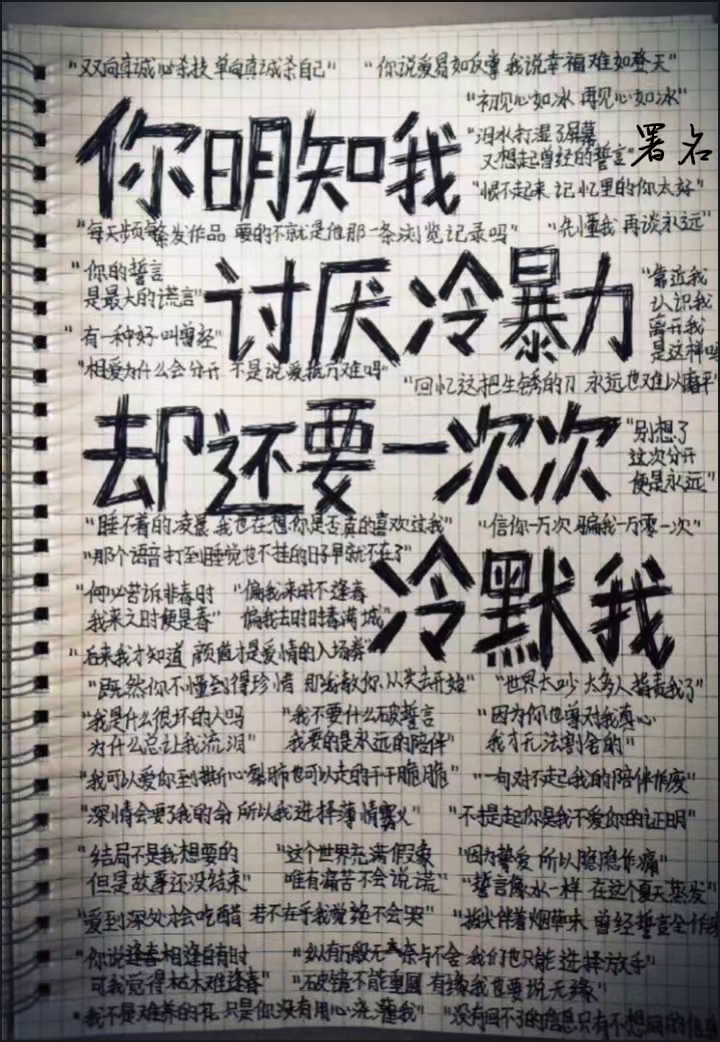 "双向真诚必杀技 单向真诚杀自己" "你说爱易如反掌 我说幸福难如登天"
"初见心如冰 再见心如冰"
你明知我
"泪水打湿了屏幕
又想起曾经的誓言"
署名
"恨不起来 记忆里的你太好"
"每天频繁发作品 要的不就是他那一条浏览记录吗" "先懂我 再谈永远"
"你的誓言
是最大的谎言"
讨厌冷暴力
"靠近我
认识我
离开我
是这样吗
"有一种好 叫曾经"
"相爱为什么会分开 不是说爱抵万难吗"
"回忆这把生锈的刀 永远也难以磨平"
却还要一次次
"别想了
这次分开
便是永远"
"睡不着的凌晨 我也在想你是否真的喜欢过我" "信你一万次 骗我一万零一次"
"那个语音打到睡觉也不挂的日子早就不在了"
冷默我
"何必苦诉非春时
我来之时便是春"
"偏我来时不逢春
偏我去时时春满城"
"后来我才知道 颜值才是爱情的入场券"
"既然你不懂到得珍惜 那我教你从失去开始" "世界太吵 太多人指责我了"
"我是什么很坏的人吗
为什么总让我流泪"
"我不要什么破誓言
我要的是永远的陪伴"
"因为你也曾对我真心
我才无法割舍的"
"我可以爱你到撕心裂肺也可以走的干干脆脆" "一句对不起我的陪伴作废"
"深情会要了我的命 所以我选择薄情寡义" "不提起你是我不爱你的证明"
"结局不是我想要的
但是故事还没结束"
"这个世界充满假象
唯有痛苦不会说谎"
"因为挚爱 所以隐隐作痛"
"誓言像水一样 在这个夏天蒸发"
"爱到深处才会吃醋 若不在乎我觉绝不会哭" "指尖伴着烟草味 曾经誓言全作废
"你说逢春相逢自有时
可我觉得枯木难逢春"
"纵有万般无奈与不舍 我们也只能选择放手"
"破镜不能重圆 有缘我也要说无缘"
"我不是难养的花 只是你没有用心浇灌我" "没有回不了的信息只有不想回的信息